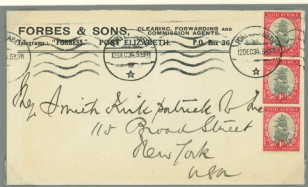 FORBES & SONS,
CLEARING, FORWARDING AND
COMMISSION AGENTS.
Telegrams: "FORBESS," PORT ELIZABETH. P.O. Box 36
12 DEC 34
12 DEC 34
Smith Kirkpatrick & Inc
115 Broad Street
New York
USA